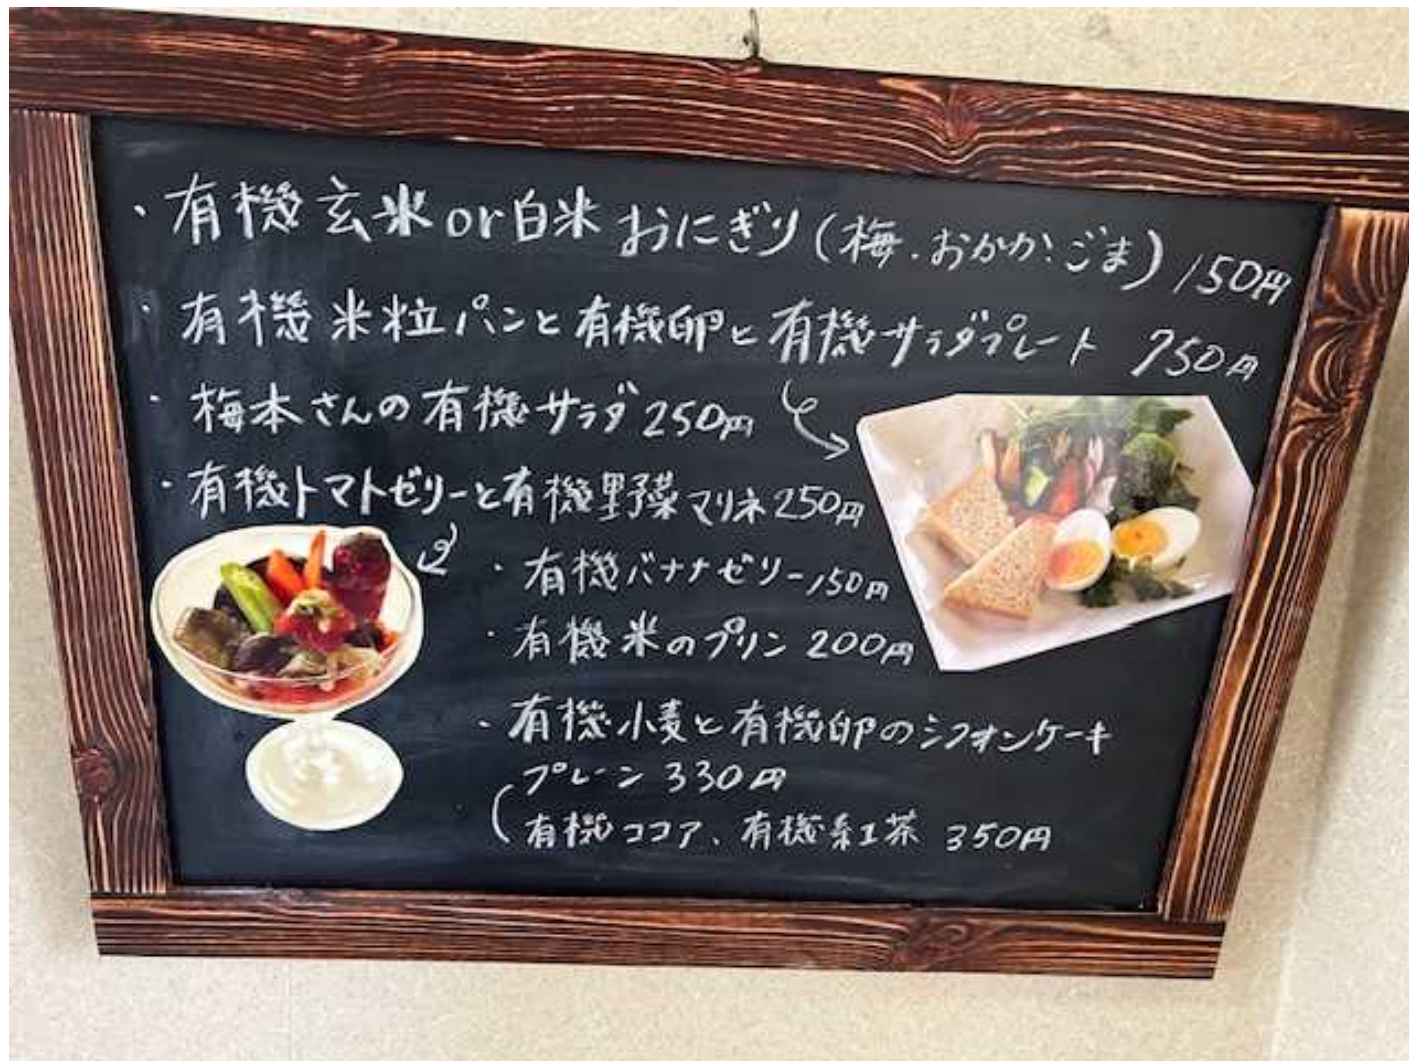 ・有機玄米or白米おにぎり(梅.おかか.ごま)150円
・有機米粒パンと有機卵と有機サラダプレート 750円
・梅本さんの有機サラダ250円
・有機トマトゼリーと有機野菜マリネ250円
・有機バナナゼリー150円
・有機米のプリン200円
・有機小麦と有機卵のシフォンケーキ
プレーン330円
有機ココア、有機紅茶 350円